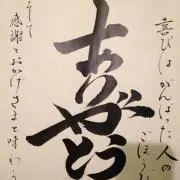 喜びはがんばった人の
ごほうび
ありがとう
そして
感謝とおかげさまと味わう